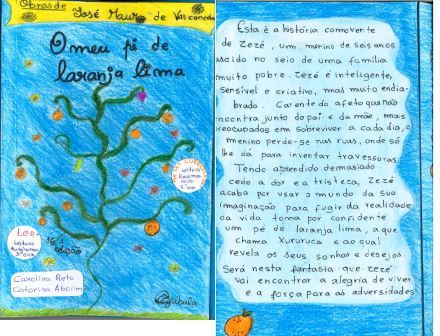 Obras de José Mauro de Vasconcelos
O meu pé de
laranja lima
Ler+
Leitura
16ª edição
Carolina Reto
Catarina Abolim
Fábula
Esta é a história comovente
de Zezé, um menino de seis anos
saído no seio de uma família
muito pobre. Zezé é inteligente,
sensível e criativo, mas muito endia-
brado. Carente do afeto que não
encontra junto do pai e da mãe, mais
preocupados em sobreviver a cada dia, o
menino perde-se nas ruas, onde só
lhe dá para inventar travessuras.
Tendo aprendido demasiado
cedo a dor e a tristeza, Zezé
acaba por usar o mundo da sua
imaginação para fugir da realidade
da vida toma por confidente
um pé de laranja lima, a que
chama Xururuca e ao qual
revela os seus sonhos e desejos
Será nesta fantasia que zezé
vai encontrar a alegria de viver
e a força para as adversidades